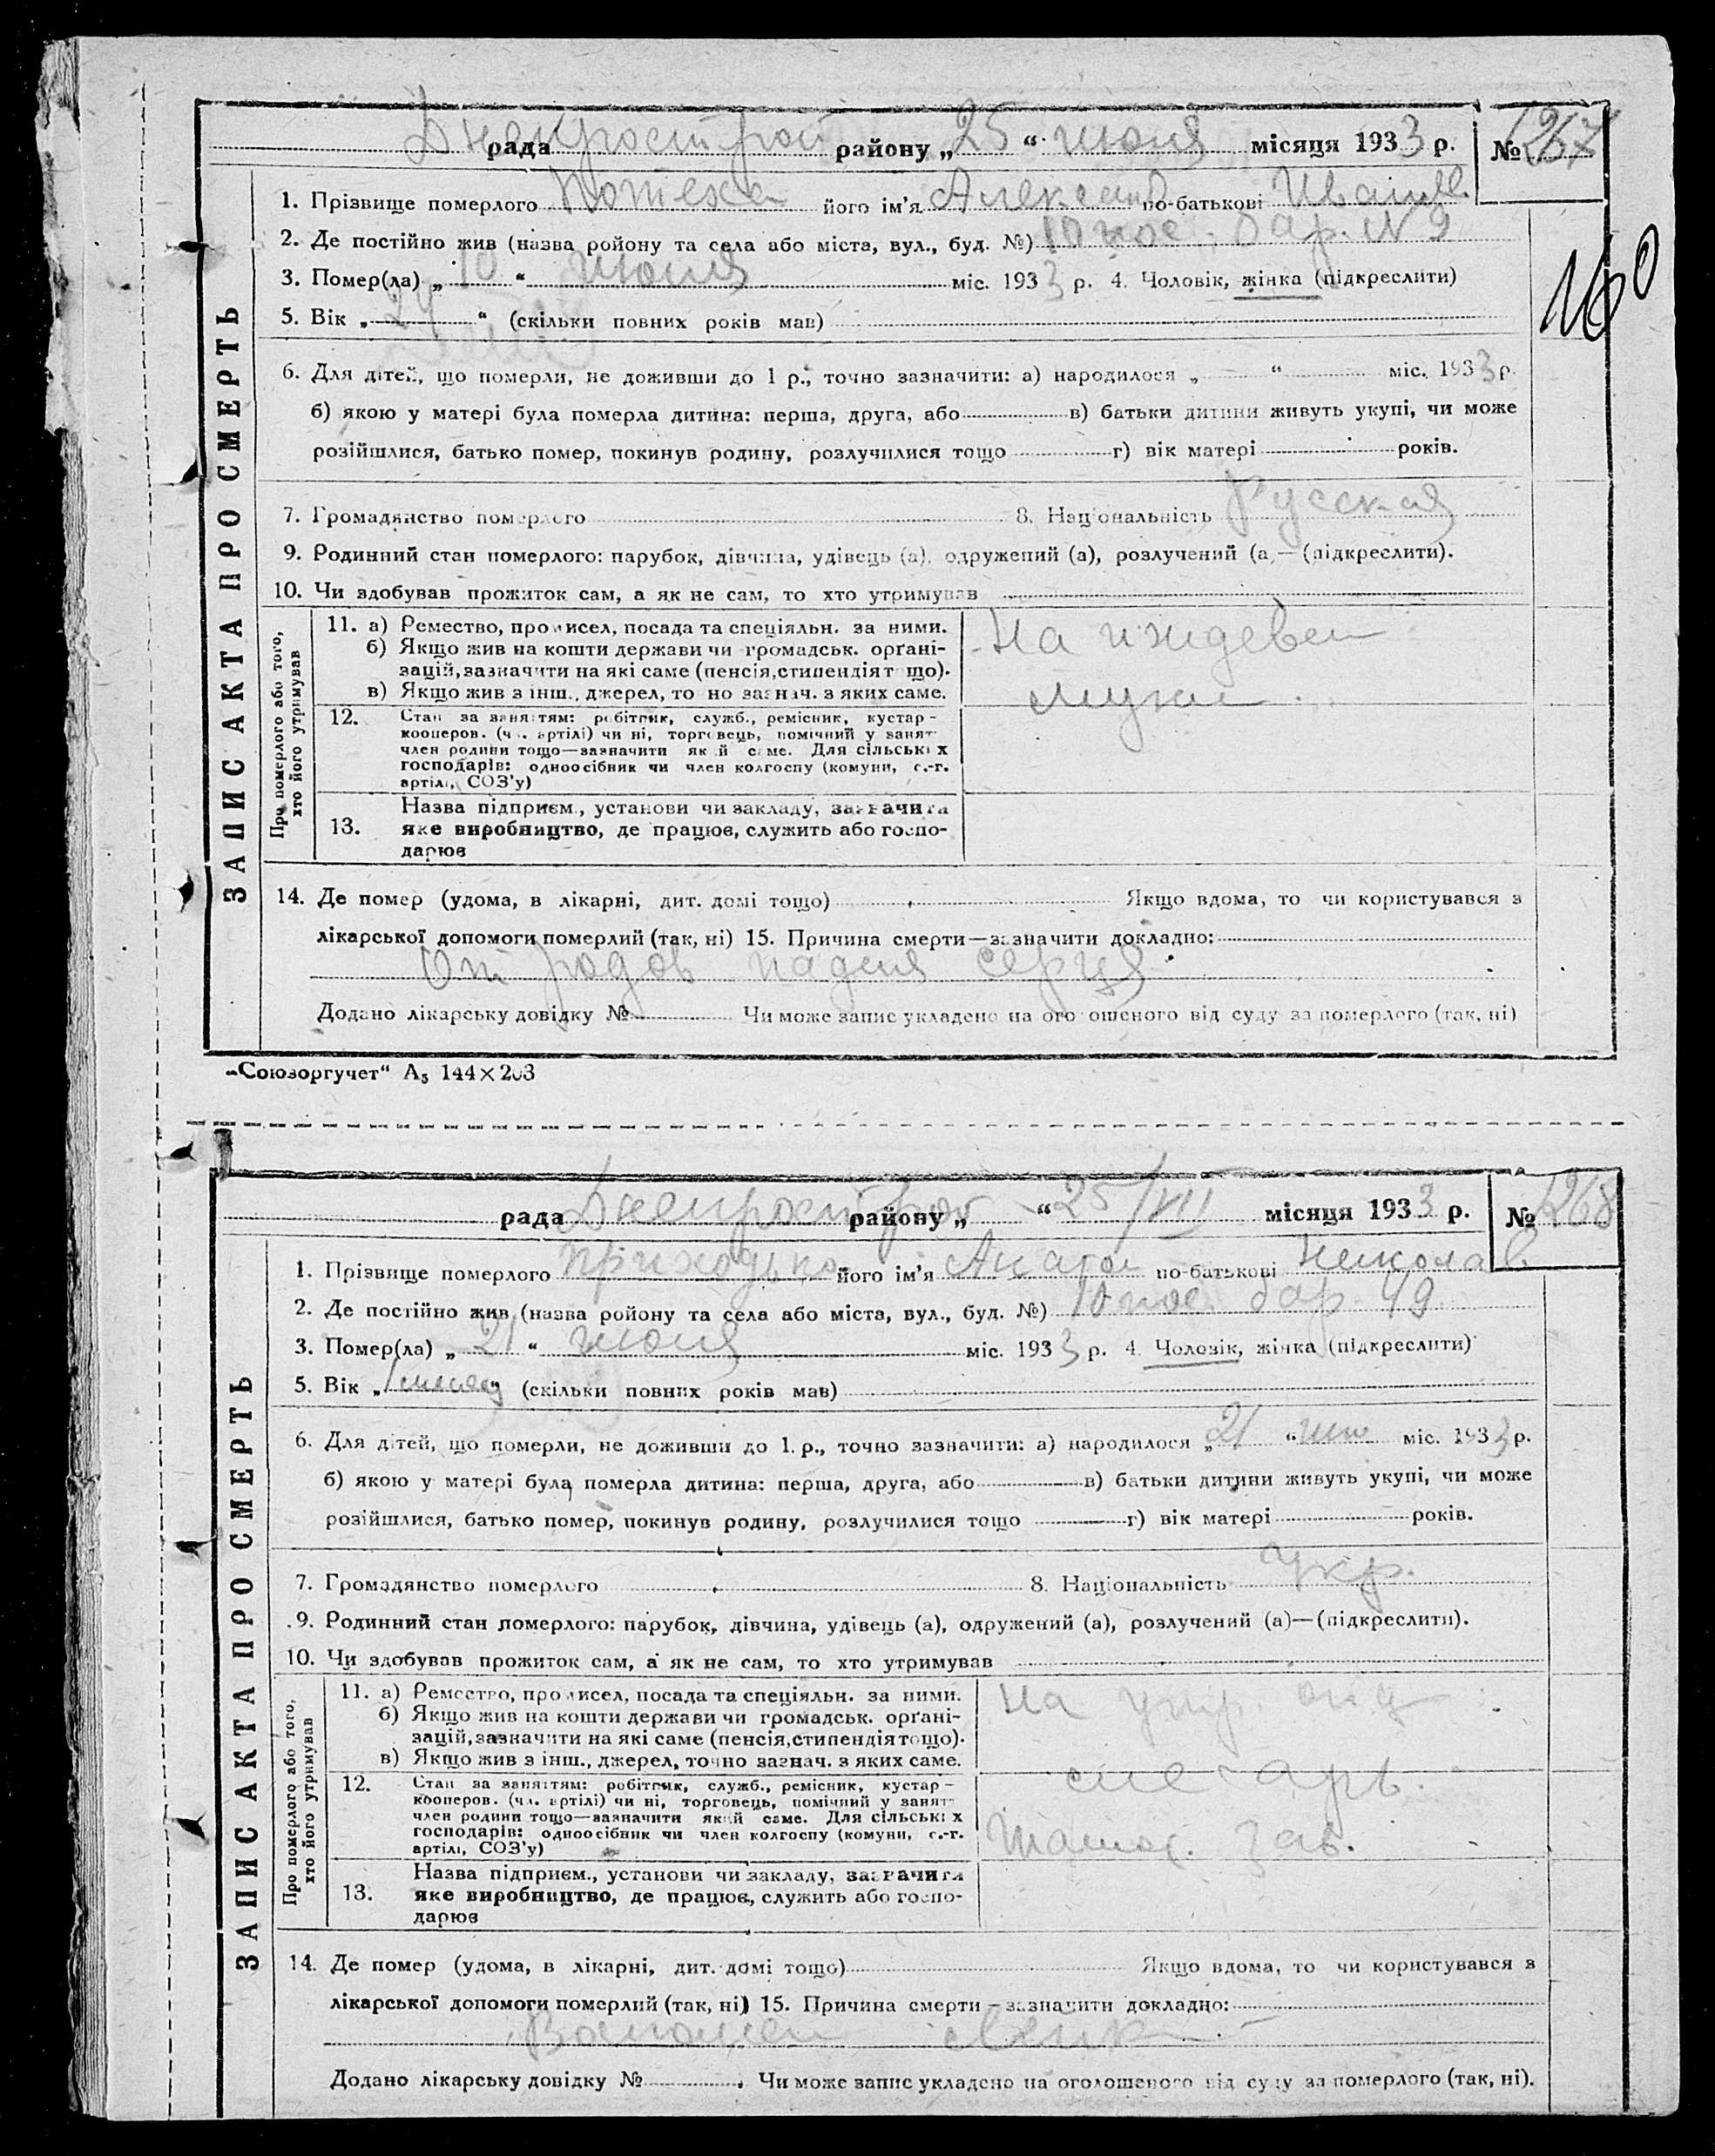 Днепрострой
рада районy „25“ июня місяця 1933 р. № 1267
1. Прізвище померлого Потеха його ім'я Александ по-батькові Иванов.
2. Де постійно жив (назва ройону та села або міста, вул., буд. №) 10 пос. бар. N 9
3. Помер(ла) „10“ июня міс. 1933 р. 4. Чоловік, жінка (підкреслити)
5. Вік „24“ (скільки повних років мав)
160
6. Для дітей, що померли, не доживши до 1 р., точно зазначити: а) народилося „ “ міс. 1933 р.
б) якою у матері була померла дитина: перша, друга, або в) батьки дитини живуть укупі, чи може
розійшлися, батько помер, покинув родину, розлучилися тощо г) вік матері років.
7. Громадянство померлого 8. Національність Русская
9. Родинний стан померлого: парубок, дівчина, удівець (а), одружений (а), розлучений (а)—(підкреслити).
10. Чи здобував прожиток сам, а як не сам, то хто утримував
ЗАПИС АКТА ПРО СМЕРТЬ
Про померлого або того,
хто його утримував
11. а) Ремество, промисел, посада та спеціяльн. за ними.
б) Якщо жив на кошти держави чи громадськ. орґані-
зацій, зазначити на які саме (пенсія, стипендія тощо).
в) Якщо жив з інш., джерел, точно зазнач. з яких саме.
На иждевен
мужа
12. Стан за заняттям: робітник, служб., ремісник, кустар-
кооперов. (чл. артілі) чи ні, торговець, помічний у занят
член родини тощо—зазначити який саме. Для сільських
господарів: одноосібник чи член колгоспу (комуни, с.-г.
артілі, СОЗ'у)
13. Назва підприєм., установи чи закладу, зазначити
яке виробництво, де працює, служить або госпо-
дарює
14. Де помер (удома, в лікарні, дит. домі тощо) Якщо вдома, то чи користувався з
лікарської допомоги померлий (так, ні) 15. Причина смерти—зазначити докладно:
От родов падения серця
Додано лікарську довідку № Чи може запис укладено на оголошеного від суду за померлого (так, ні)
„Союзоргучет“ А₅ 144×203
Днепрострой
рада районy „ “ 25/VII місяця 1933 р. № 1268
1. Прізвище померлого Приходько його ім'я Анатол по-батькові Николаев
2. Де постійно жив (назва ройону та села або міста, вул., буд. №) 10 пос. бар. 49
3. Помер(ла) „21“ июня міс. 1933 р. 4. Чоловік, жінка (підкреслити)
5. Вік „1 месяц“ (скільки повних років мав)
6. Для дітей, що померли, не доживши до 1 р., точно зазначити: а) народилося „21“ міс. 1933 р.
б) якою у матері була померла дитина: перша, друга, або в) батьки дитини живуть укупі, чи може
розійшлися, батько помер, покинув родину, розлучилися тощо г) вік матері років.
7. Громадянство померлого 8. Національність Укр.
9. Родинний стан померлого: парубок, дівчина, удівець (а), одружений (а), розлучений (а)—(підкреслити).
10. Чи здобував прожиток сам, а як не сам, то хто утримував
ЗАПИС АКТА ПРО СМЕРТЬ
Про померлого або того,
хто його утримував
11. а) Ремество, промисел, посада та спеціяльн. за ними.
б) Якщо жив на кошти держави чи громадськ. орґані-
зацій, зазначити на які саме (пенсія, стипендія тощо).
в) Якщо жив з інш., джерел, точно зазнач. з яких саме.
На
12. Стан за заняттям: робітник, служб., ремісник, кустар-
кооперов. (чл. артілі) чи ні, торговець, помічний у занят
член родини тощо—зазначити який саме. Для сільських
господарів: одноосібник чи член колгоспу (комуни, с.-г.
артілі, СОЗ'у)
зав.
13. Назва підприєм., установи чи закладу, зазначити
яке виробництво, де працює, служить або госпо-
дарює
14. Де помер (удома, в лікарні, дит. домі тощо) Якщо вдома, то чи користувався з
лікарської допомоги померлий (так, ні) 15. Причина смерти—зазначити докладно:
Додано лікарську довідку № Чи може запис укладено на оголошеного від суду за померлого (так, ні).